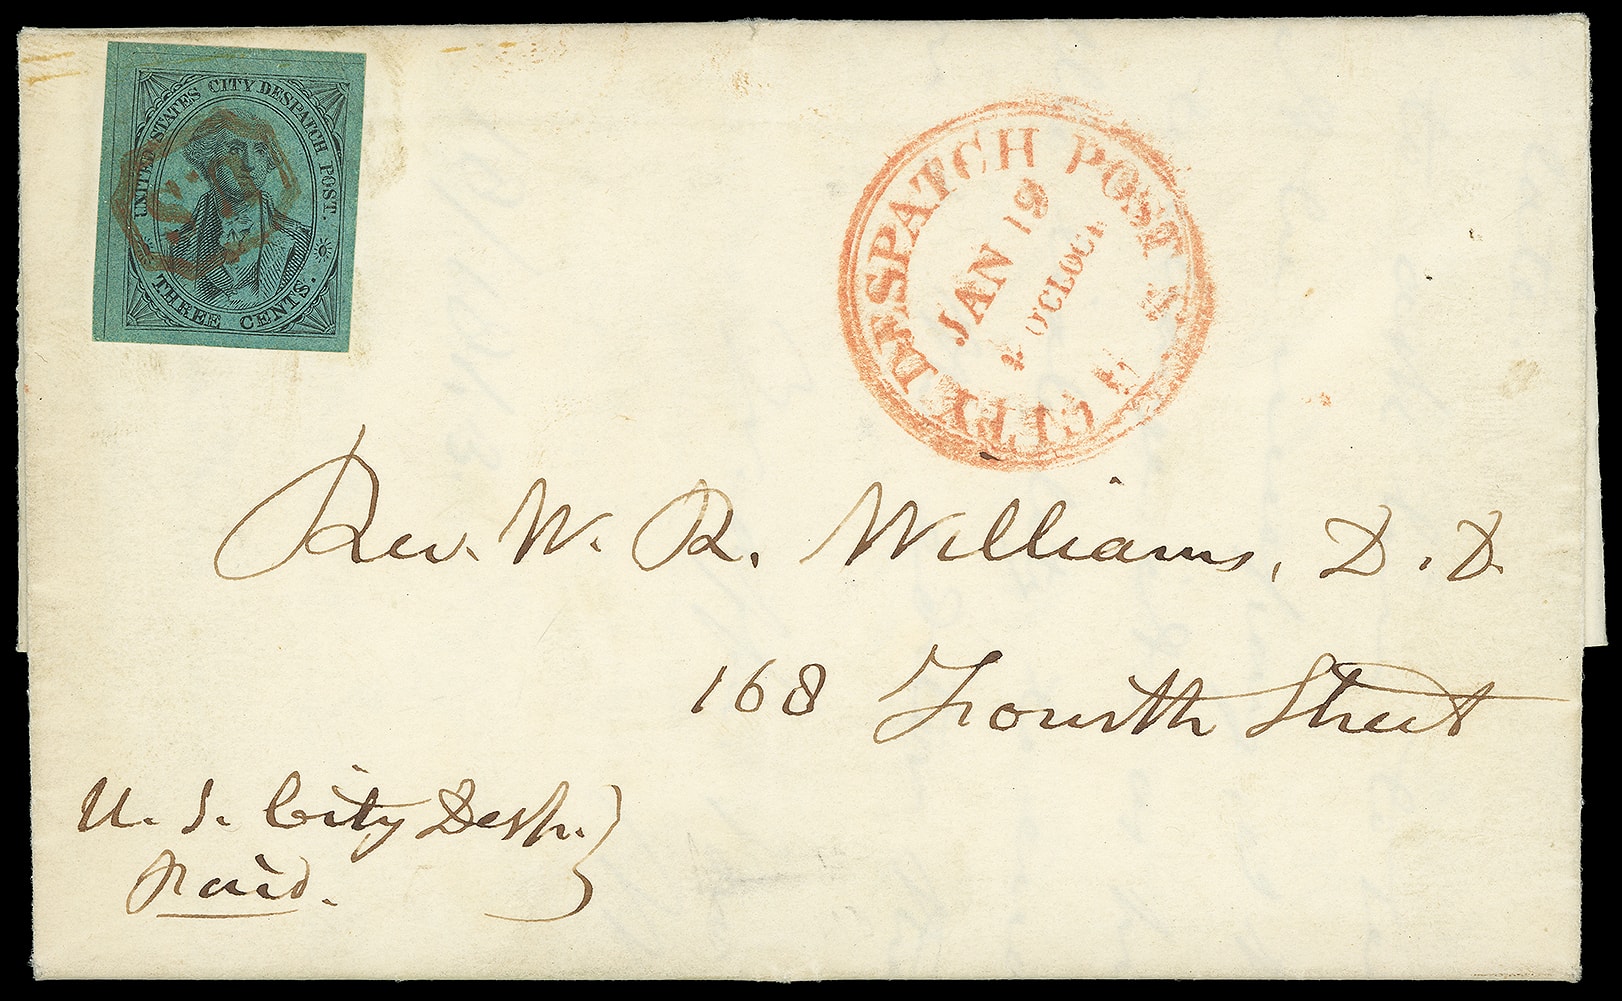 UNITED STATES CITY DESPATCH POST.
THREE CENTS.
U.S
CITY DESPATCH POST
U.S
JAN 19
4 O'CLOCK
Rev. W. R. Williams, D. D.
168 Fourth Street
U. S. City Desp.
Paid.